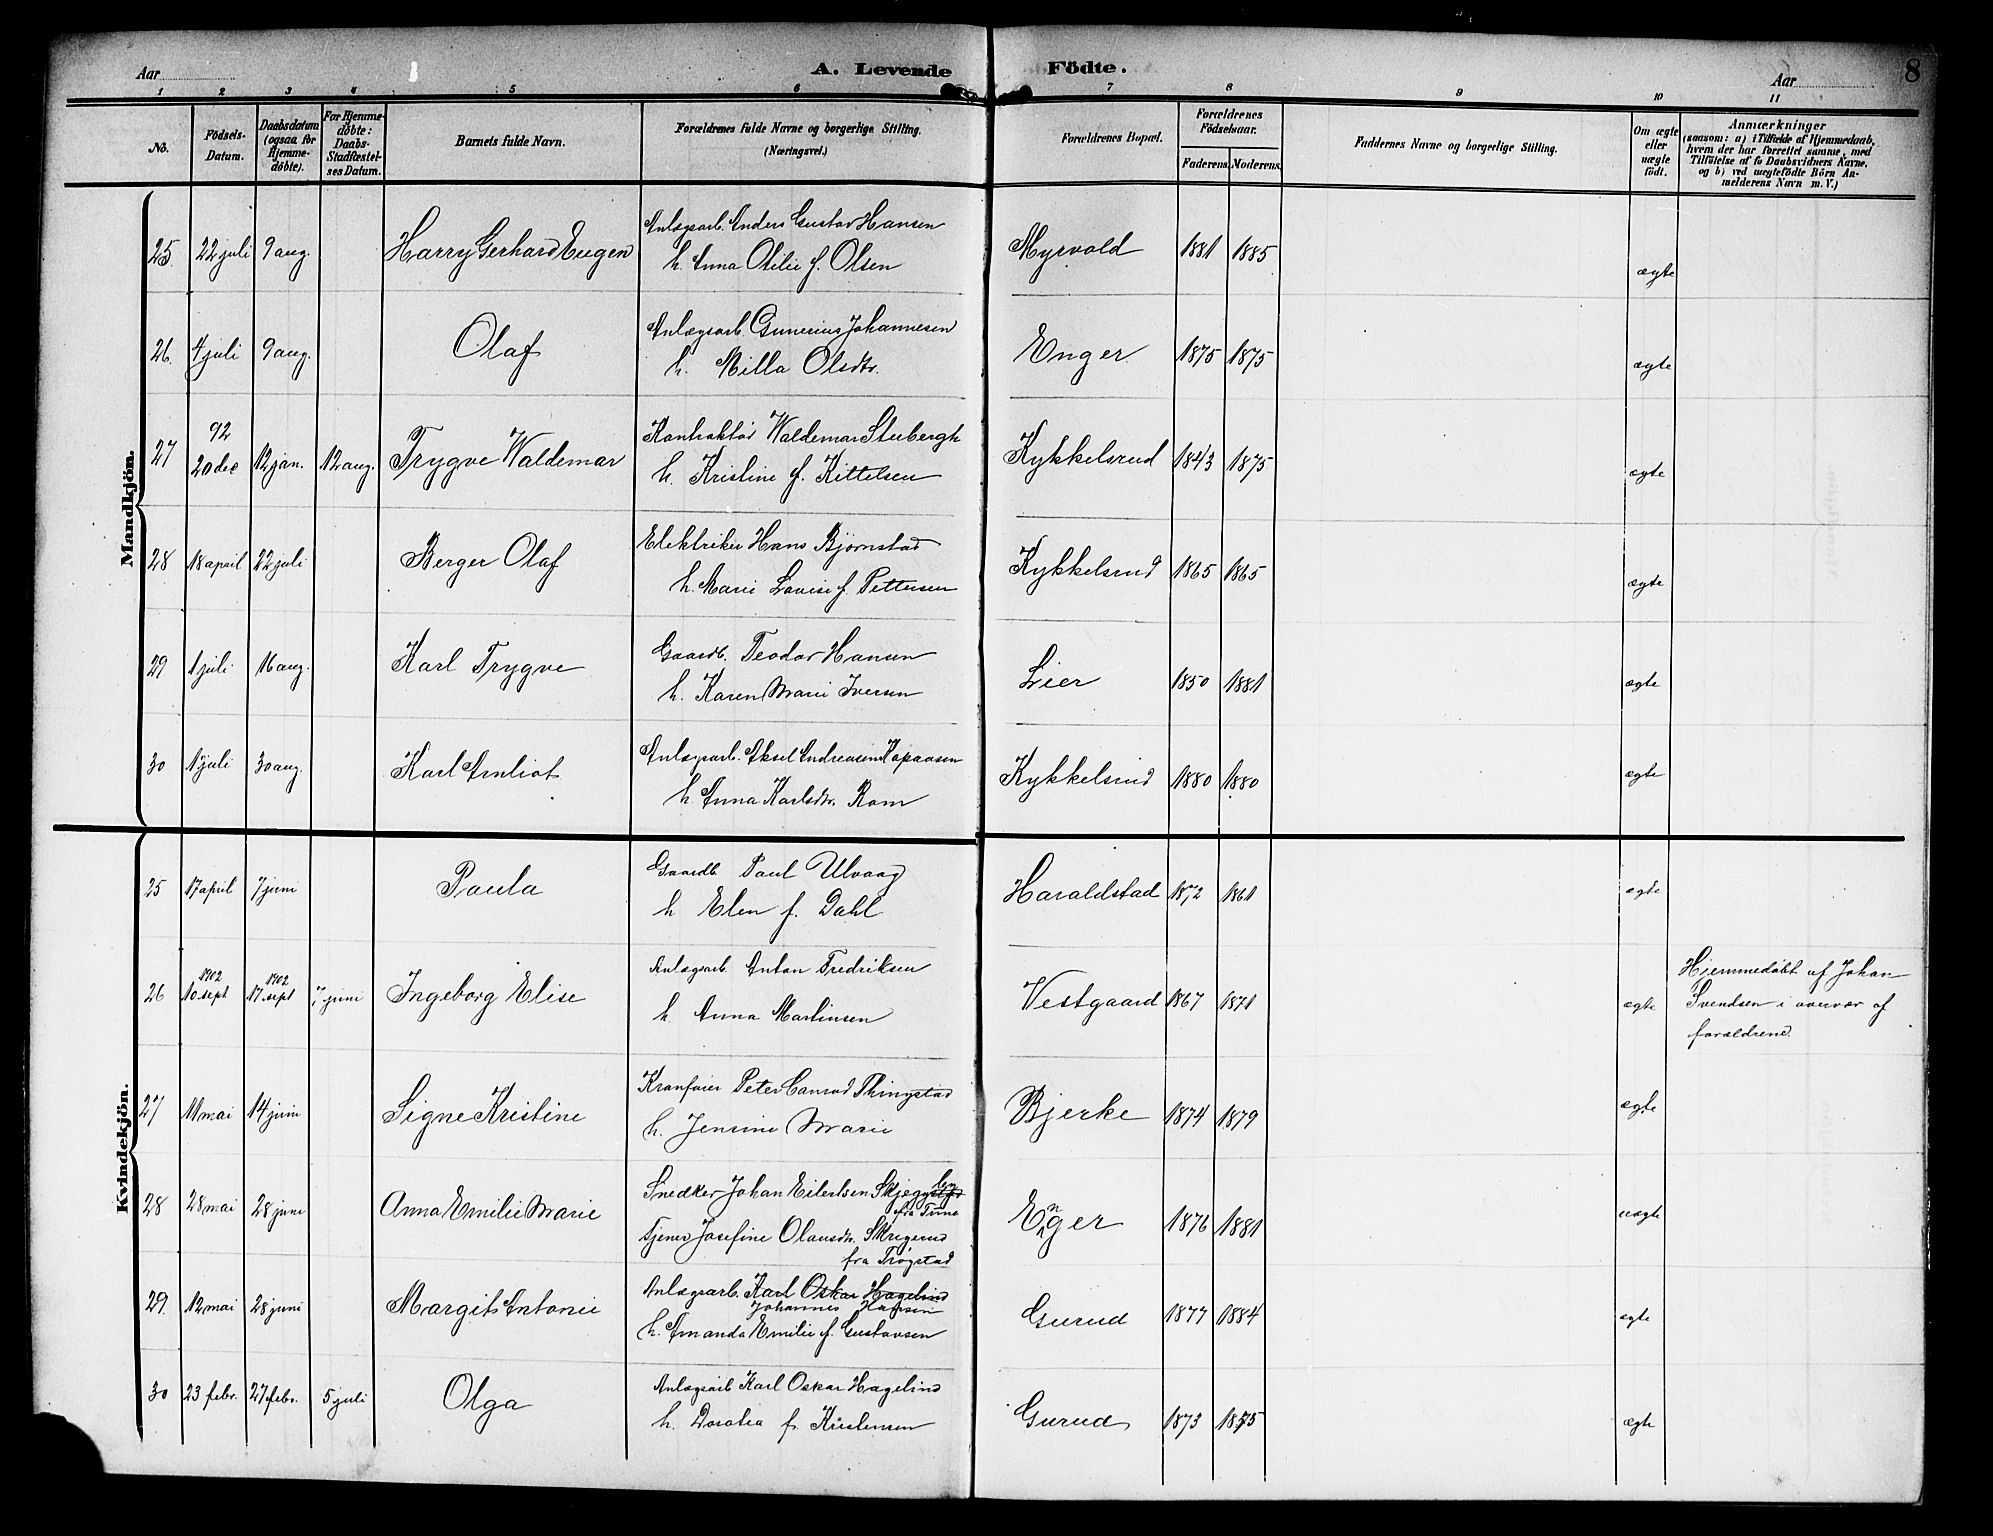 Aar
A. Levende Födte.
Aar
8
1 2 3 4 5 6 7 8 9 10 11
No.
Födsels-Datum.
Daabsdatum (ogsaa for Hjemme-döbte).
For Hjemme-döbte: Daabs-Stadfæstel-ses Datum.
Barnets fulde Navn.
Forældrenes fulde Navne og borgerlige Stilling.
(Næringsvei.)
Forældrenes Bopæl.
Forældrenes Födselsaar.
Faderens. Moderens.
Faddernes Navne og borgerlige Stilling.
Om ægte eller uægte födt.
Anmærkninger
(saasom: a) i Tilfælde af Hjemmedaab,
hvem der har forrettet samme, med
Tilföielse af to Daabsvidners Navne,
og b) ved uægtefödte Börn An-
melderens Navn m. V.)
Mandkjön.
25. 22 juli 9 aug. Harry Gerhard Eugen Anlægsarb. Anders Gustav Hansen Myrvold 1881 1885 ægte
h. Anna Otilie f. Olsen
26. 4 juli 9 aug. Olaf Anlægsarb. Gunerius Johannesen Enger 1875 1875 ægte
h. Milla Olsdtr.
92
27 20 dec 12 jan. 12 aug. Trygve Waldemar Kontraktör Waldemar Stubergh Kykkelsrud 1843 1875 ægte
h. Kristine f. Kittelsen
28 18 april 22 juli Berger Olaf Elektriker Hans Bjørnstad Kykkelsrud 1865 1865 ægte
h. Marie Lovise f. Pettersen
29 1 juli 16 aug. Karl Trygve Gaardb. Teodor Hansen Lier 1850 1881 ægte
h. Karen Marie Iversen
30 1 juli 30 aug. Karl Arnliot Anlægsarb. Aksel Andreasen Kykkelsrud 1880 1880 ægte
h. Anna Karlsdtr. Rom
Kvindekjön.
25 17 april 7 juni Paula Gaardb. Paul Ulvaag Haraldstad 1872 1861 ægte
h Elen f. Dahl
1902 1902
26 10 sept 17 sept 7 juni Ingeborg Elise Anlægsarb. Anton Fredriksen Vestgaard 1867 1871 ægte
h. Anna Martinsen
Hjemmedöbt af Johan
Svendsen i overvær af
forældrene.
27 11 mai 14 juni Signe Kristine Kranfører Peter Conrad Thingstad Bjerke 1874 1879 ægte
h. Jensine Marie
28 28 mai 28 juni Anna Emilie Marie Snedker Johan Eilertsen Enger 1876 1881 uægte
fra Tune
Tjener Josefine Olausdtr. Skregerud
fra Trøgstad
29. 12 mai 28 juni Margit Antonie Anlægsarb. Karl Oskar Hagelind Gurud 1877 1884 ægte
Johannes Hansen
h. Amanda Emilie f. Gustavsen
30 23 febr. 27 febr. 5 juli Olga Anlægsarb Karl Oskar Hagelind Gurud 1873 1875 ægte
h. Dorotea f. Kristensen